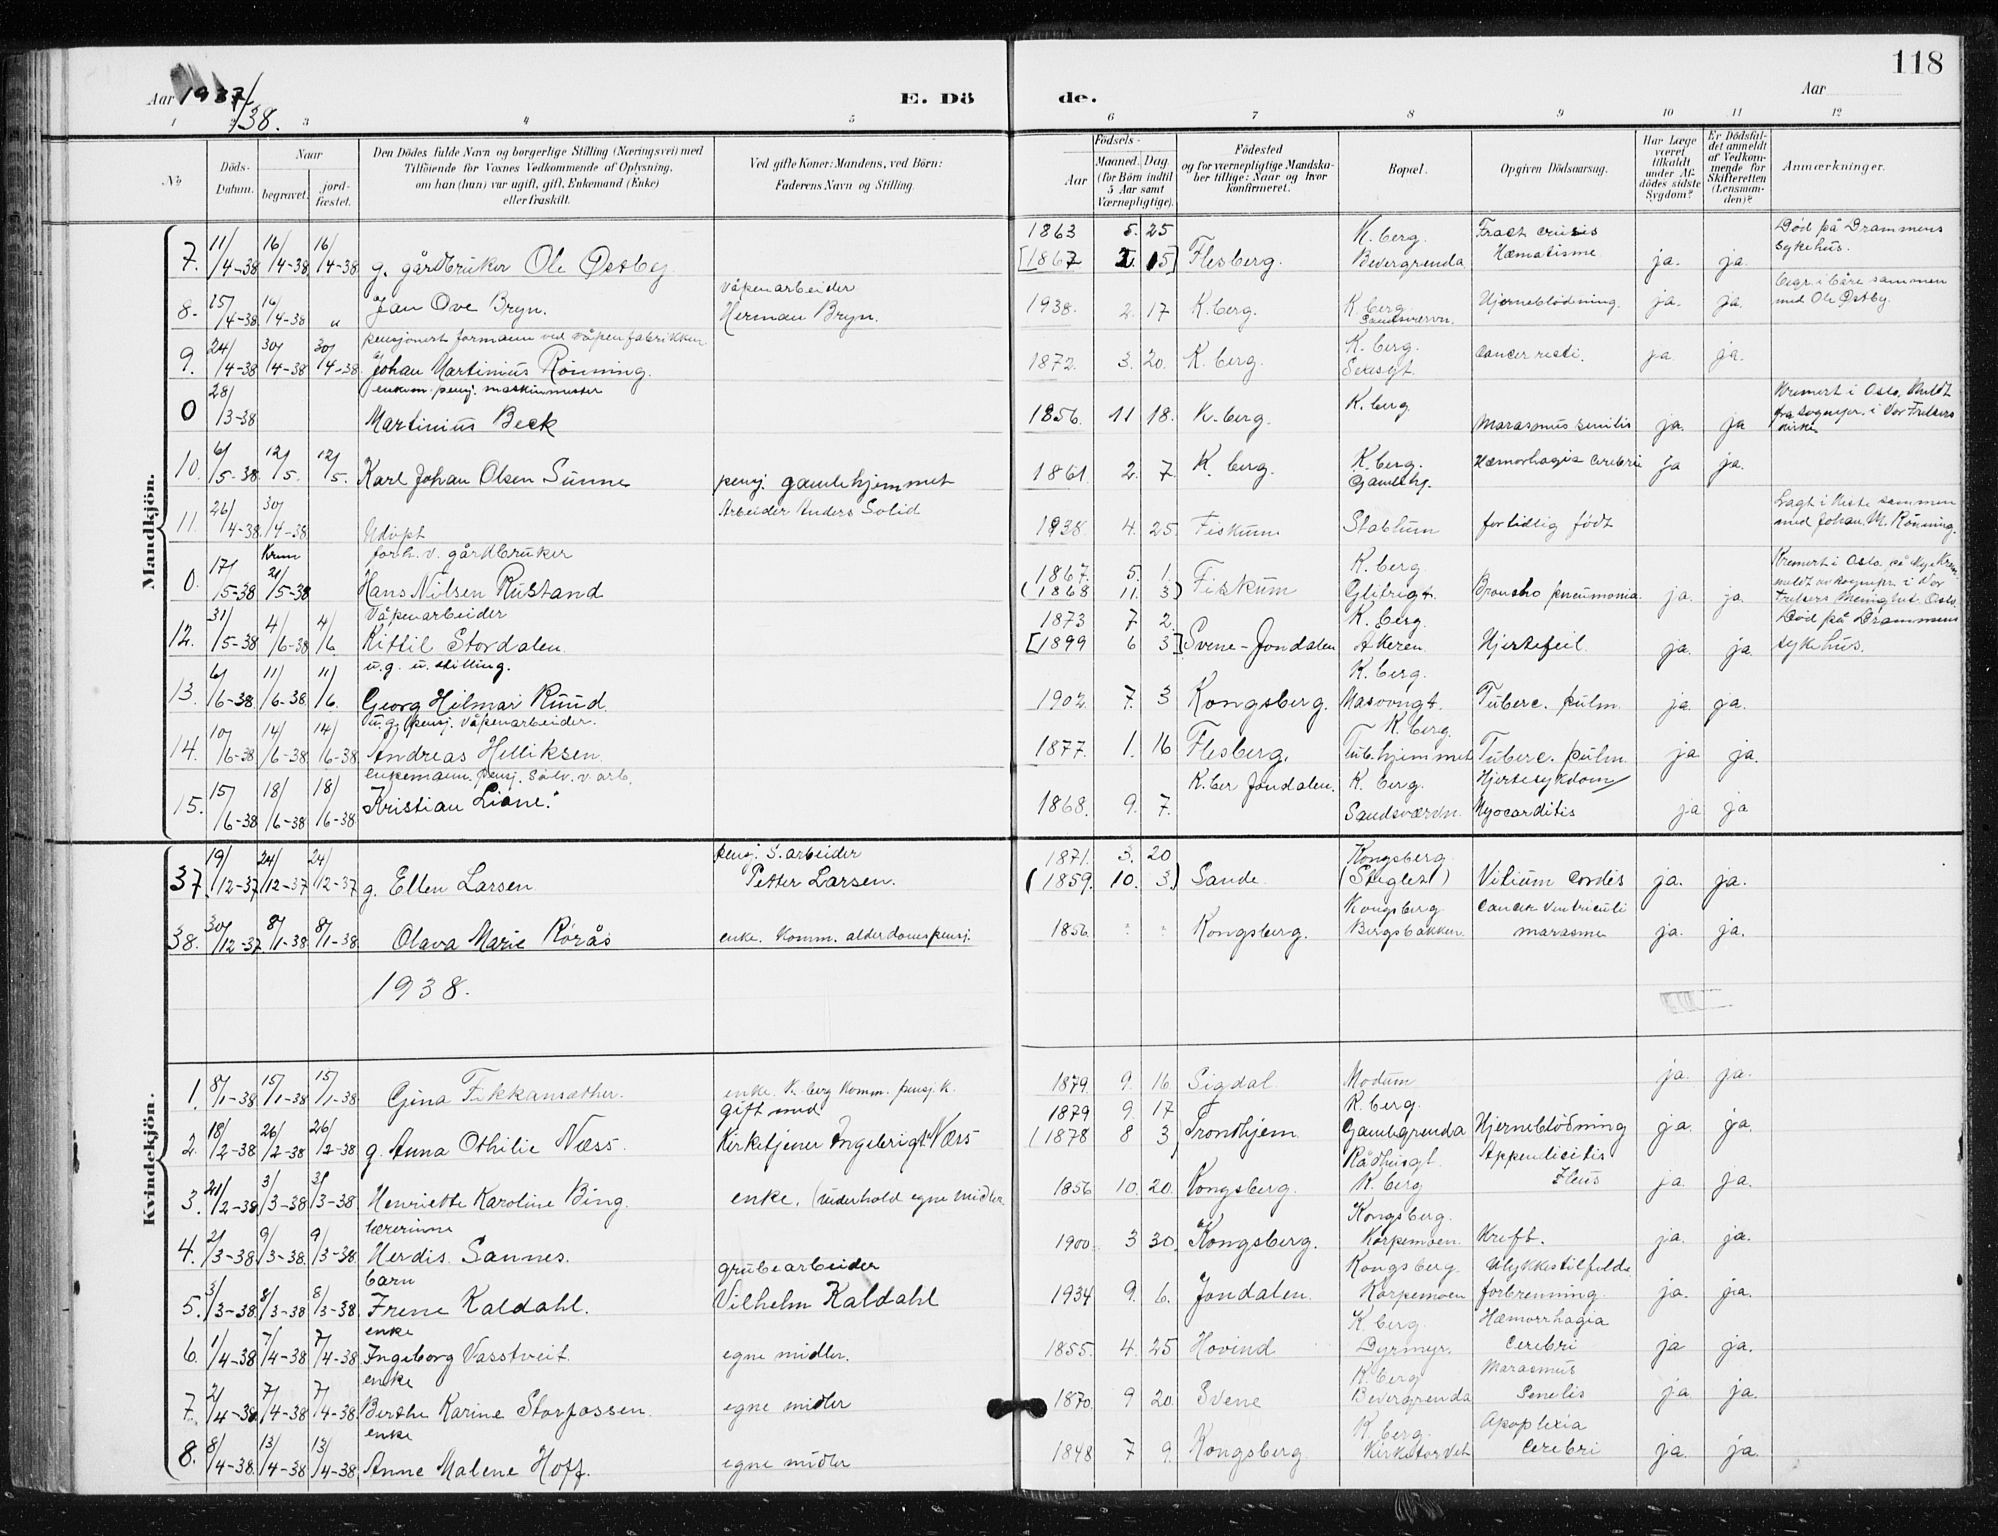 118
Aar 1937/38.
E. Dö de.
Aar
1 2 3 4 5 6 7 8 9 10 11 12
No
Döds-Datum.
Naar
begravet.
jord-fæstet.
Den Dödes fulde Navn og borgerlige Stilling (Næringsvei) med
Tilföiende for Voxnes Vedkommende af Oplysning,
om han (hun) var ugift, gift, Enkemand (Enke)
eller fraskilt.
Ved gifte Koner: Mandens, ved Börn:
Faderens Navn og Stilling.
Födsels-
Aar
Maaned. Dag.
(for Börn indtil
5 Aar samt
Værnepligtige).
Födested
og for værnepligtige Mandska-
ber tillige: Naar og hvor
konfirmeret.
Bopæl.
Opgiven Dödsaarsag.
Har Læge
været
tilkaldt
under Af-
dödes sidste
Sygdom?
Er Dödsfal-
det anmeldt
af Vedkom-
mende for
Skifteretten
(Lensman-
den)?
Anmærkninger.
Mandkjön.
1863 5. 25 K. berg. Fract cruris Död på Drammens
7. 11/4-38 16/4-38 16/4-38 g. gårdbruker Ole Østby [1867 15] Flesberg. Bevergrenda Hæmatisme ja. ja. sykehus.
våpenarbeider begr. i båre sammen
8. 15/4-38 16/4-38 " Jan Ove Bryn. Herman Bryn. 1938. 2. 17 K. berg. K. berg Sandsværvn. Hjerneblödning. ja. ja. med Ole Østby.
pensjonert formann ved våpenfabrikken
9. 24/4-38 30/4-38 30/4-38 Johan Martinius Rönning. 1872. 3. 20. K. berg K. berg. Cancer recti. ja ja.
enkem. pensj. maskinmester
0 28/3-38 Martinius Beck 1856. 11 18. K. berg. K. berg Marasmus senilis ja. ja Kremert i Oslo.
10. 6/5-38 12/5. 12/5. Karl Johan Olsen Sunne pensj. gamlehjemmet 1861 2. 7. K. berg. K. berg. Gamlehj. Hæmorhagia cerebri ja ja.
Arbeider Anders Solid Lagt i kiste sammen
11. 26/4-38 30/4-38 Udöpt 1938 4. 25 Fiskum Stablum for tidlig födt med Johan M. Rönning.
forh. v. gårdbruker
0. 17/5-38 Krem 21/5-38 Hans Nilsen Rustand 1867. 5. 1. (1868 11. 3) Fiskum K. berg Glitregt. Broncho pneumonia. ja. ja. Kremert i Oslo
Våpenarbeider
12. 31/5-38 4/6-38 4/6. Kittil Stordalen 1873 7 2. [1899 6 3] Svene-Jondalen K. berg. Akeren Hjertefeil. ja. ja Död på Drammens sykehus.
u.g. u. stilling.
13. 6/6-38 11/6-38 11/6. Georg Hilmar Ruud. 1902. 7. 3 Kongsberg. K. berg. Tuberc. pulm. ja. ja.
u.g. pensj. våpenarbeider.
14. 10/6-38 14/6-38 14/6-38 Andreas Helliksen. 1877. 1. 16 Flesberg. K. berg. Tub. hjemmet Tuberc. pulm. ja ja.
enkemann. pensj. sölv. v. arb.
15. 15/6-38 18/6-38 18/6-38 Kristian Liane. 1868. 9. 7. K. ber Jondalen. K. berg. Sandsværvn. Hjertesykdom Myocarditis ja ja
Kvindekjön.
pensj. S. arbeider
37. 19/12-37 24/12-37 24/12-37 g. Ellen Larsen Petter Larsen. 1871. 3. 20 (1859. 10. 3.) Sande. Kongsberg (Steglet) Vitium cordis ja. ja.
38. 30/12-37 8/1-38 8/1-38 Olava Marie Rörås enke. Komm. alderdomspensj. 1856. " " Kongsberg. Kongsberg Bergsbakken Cancer ventriculi marasme ja. ja.
1938.
1. 8/1-38 15/1-38 15/1-38 Gina Fekkansæther. enke. K. berg Komm. pensj. k. 1879. 9. 16 Sigdal. Modum ja. ja.
gift med
2. 18/2-38 26/2-38 26/2-38 g. Anna Othilie Næss. Kirketjener Ingebrigt Næss 1879 9. 17 (1878 8 3) Trondhjem. K. berg. Gamlegrenda Hjerneblödning ja. ja.
3. 21/2-38 3/3-38 3/3-38 Henriette Karoline Bing. enke. (underhold egne midler 1856 10. 20. Kongsberg. Rådhusgt. K. berg Appendicitis Ileus ja. ja.
lærerinne
4. 2/3-38 9/3-38 9/3-38 Herdis Sannes. 1900. 3 30. Kongsberg. Kongsberg. Korpemoen. Kreft. ja. ja.
barn grubearbeider
5. 3/3-38 8/3-38 8/3-38 Irene Kaldahl. Vilhelm Kaldahl 1934 9. 6. Jondalen. Kongsberg. Korpemoen Ulykkestilfelde forbrenning. ja. ja.
enke
6. 1/4-38 7/4-38 7/4-38 Ingeborg Vasstveit. egne midler. 1855. 4. 25 Hovind K. berg. Dyrmyr. Hæmorrhagia cerebri ja ja.
enke
7. 2/4-38. 7/4-38 7/4-38 Berthe Karine Storfossen. egne midler 1870. 9 20. Svene K. berg Bevergrenda Marasmus Senelis ja ja.
enke
8. 8/4-38. 13/4-38 13/4-38 Anne Malene Hoff. egne midler 1848 7 9. Kongsberg K. berg. Kirketorvet Apoplexia cerebri ja. ja.